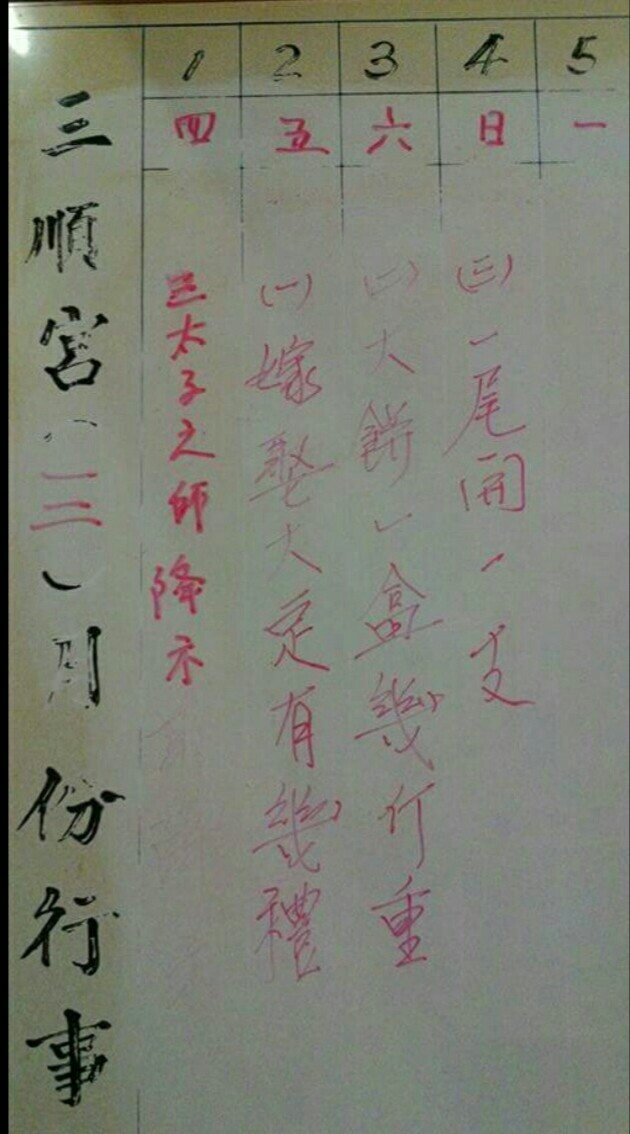 三順宮(三)月份行事
1 2 3 4 5
四 五 六 日 一
三太子之師降示
(一)嫁娶大定有幾禮
(二)大餅一盒幾斤重
(三)一尾開一支